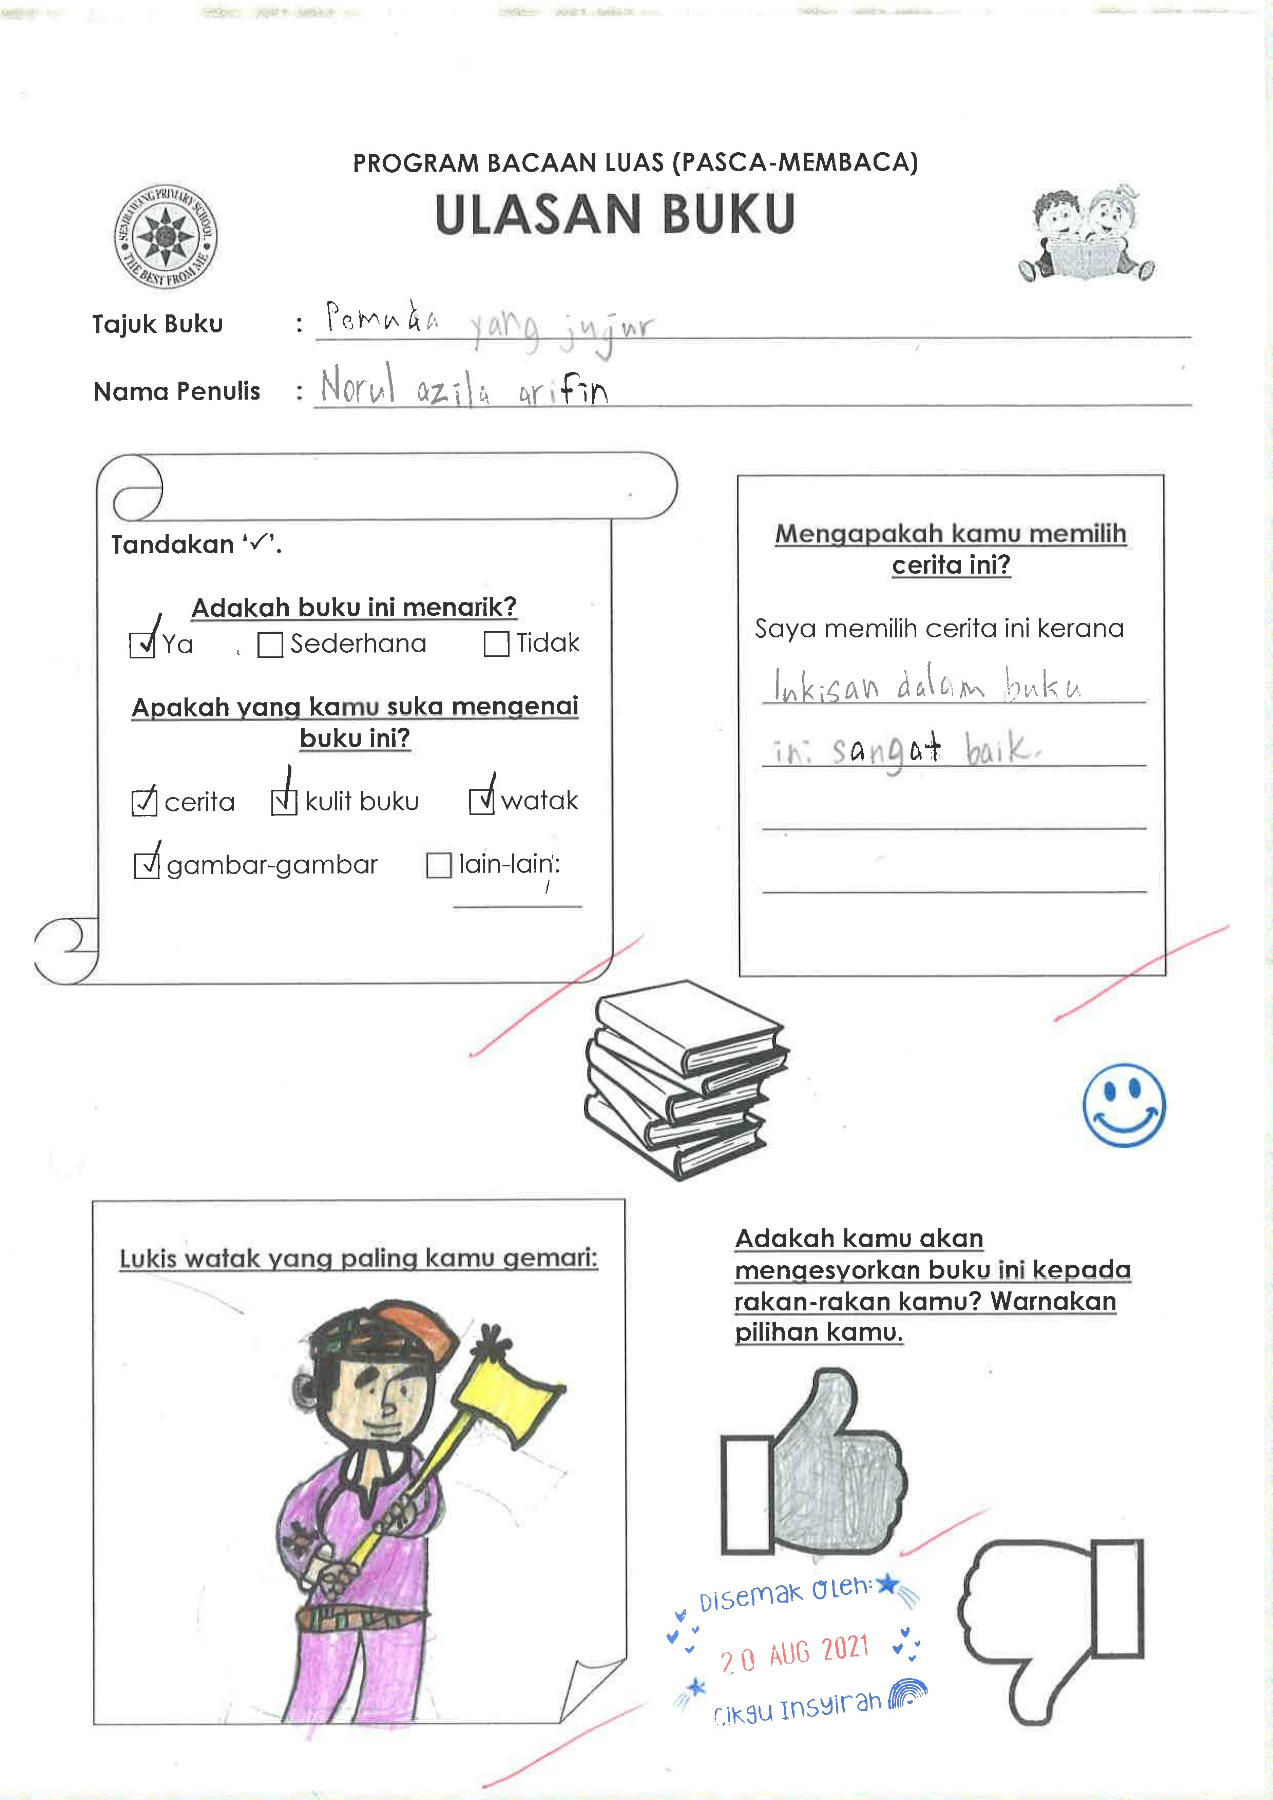 PROGRAM BACAAN LUAS (PASCA-MEMBACA)
ULASAN BUKU
SEMBAWANG PRIMARY SCHOOL
THE BEST FROM ME
Tajuk Buku : Pemuda yang jujur
Nama Penulis : Norul azila arifin
Tandakan '✓'.
Adakah buku ini menarik?
✓ Ya Sederhana Tidak
Apakah yang kamu suka mengenai
buku ini?
✓ cerita ✓ kulit buku ✓ watak
✓ gambar-gambar lain-lain:
Mengapakah kamu memilih
cerita ini?
Saya memilih cerita ini kerana
lukisan dalam buku
ini sangat baik.
Lukis watak yang paling kamu gemari:
Adakah kamu akan
mengesyorkan buku ini kepada
rakan-rakan kamu? Warnakan
pilihan kamu.
Disemak oleh:
20 AUG 2021
Cikgu Insyirah